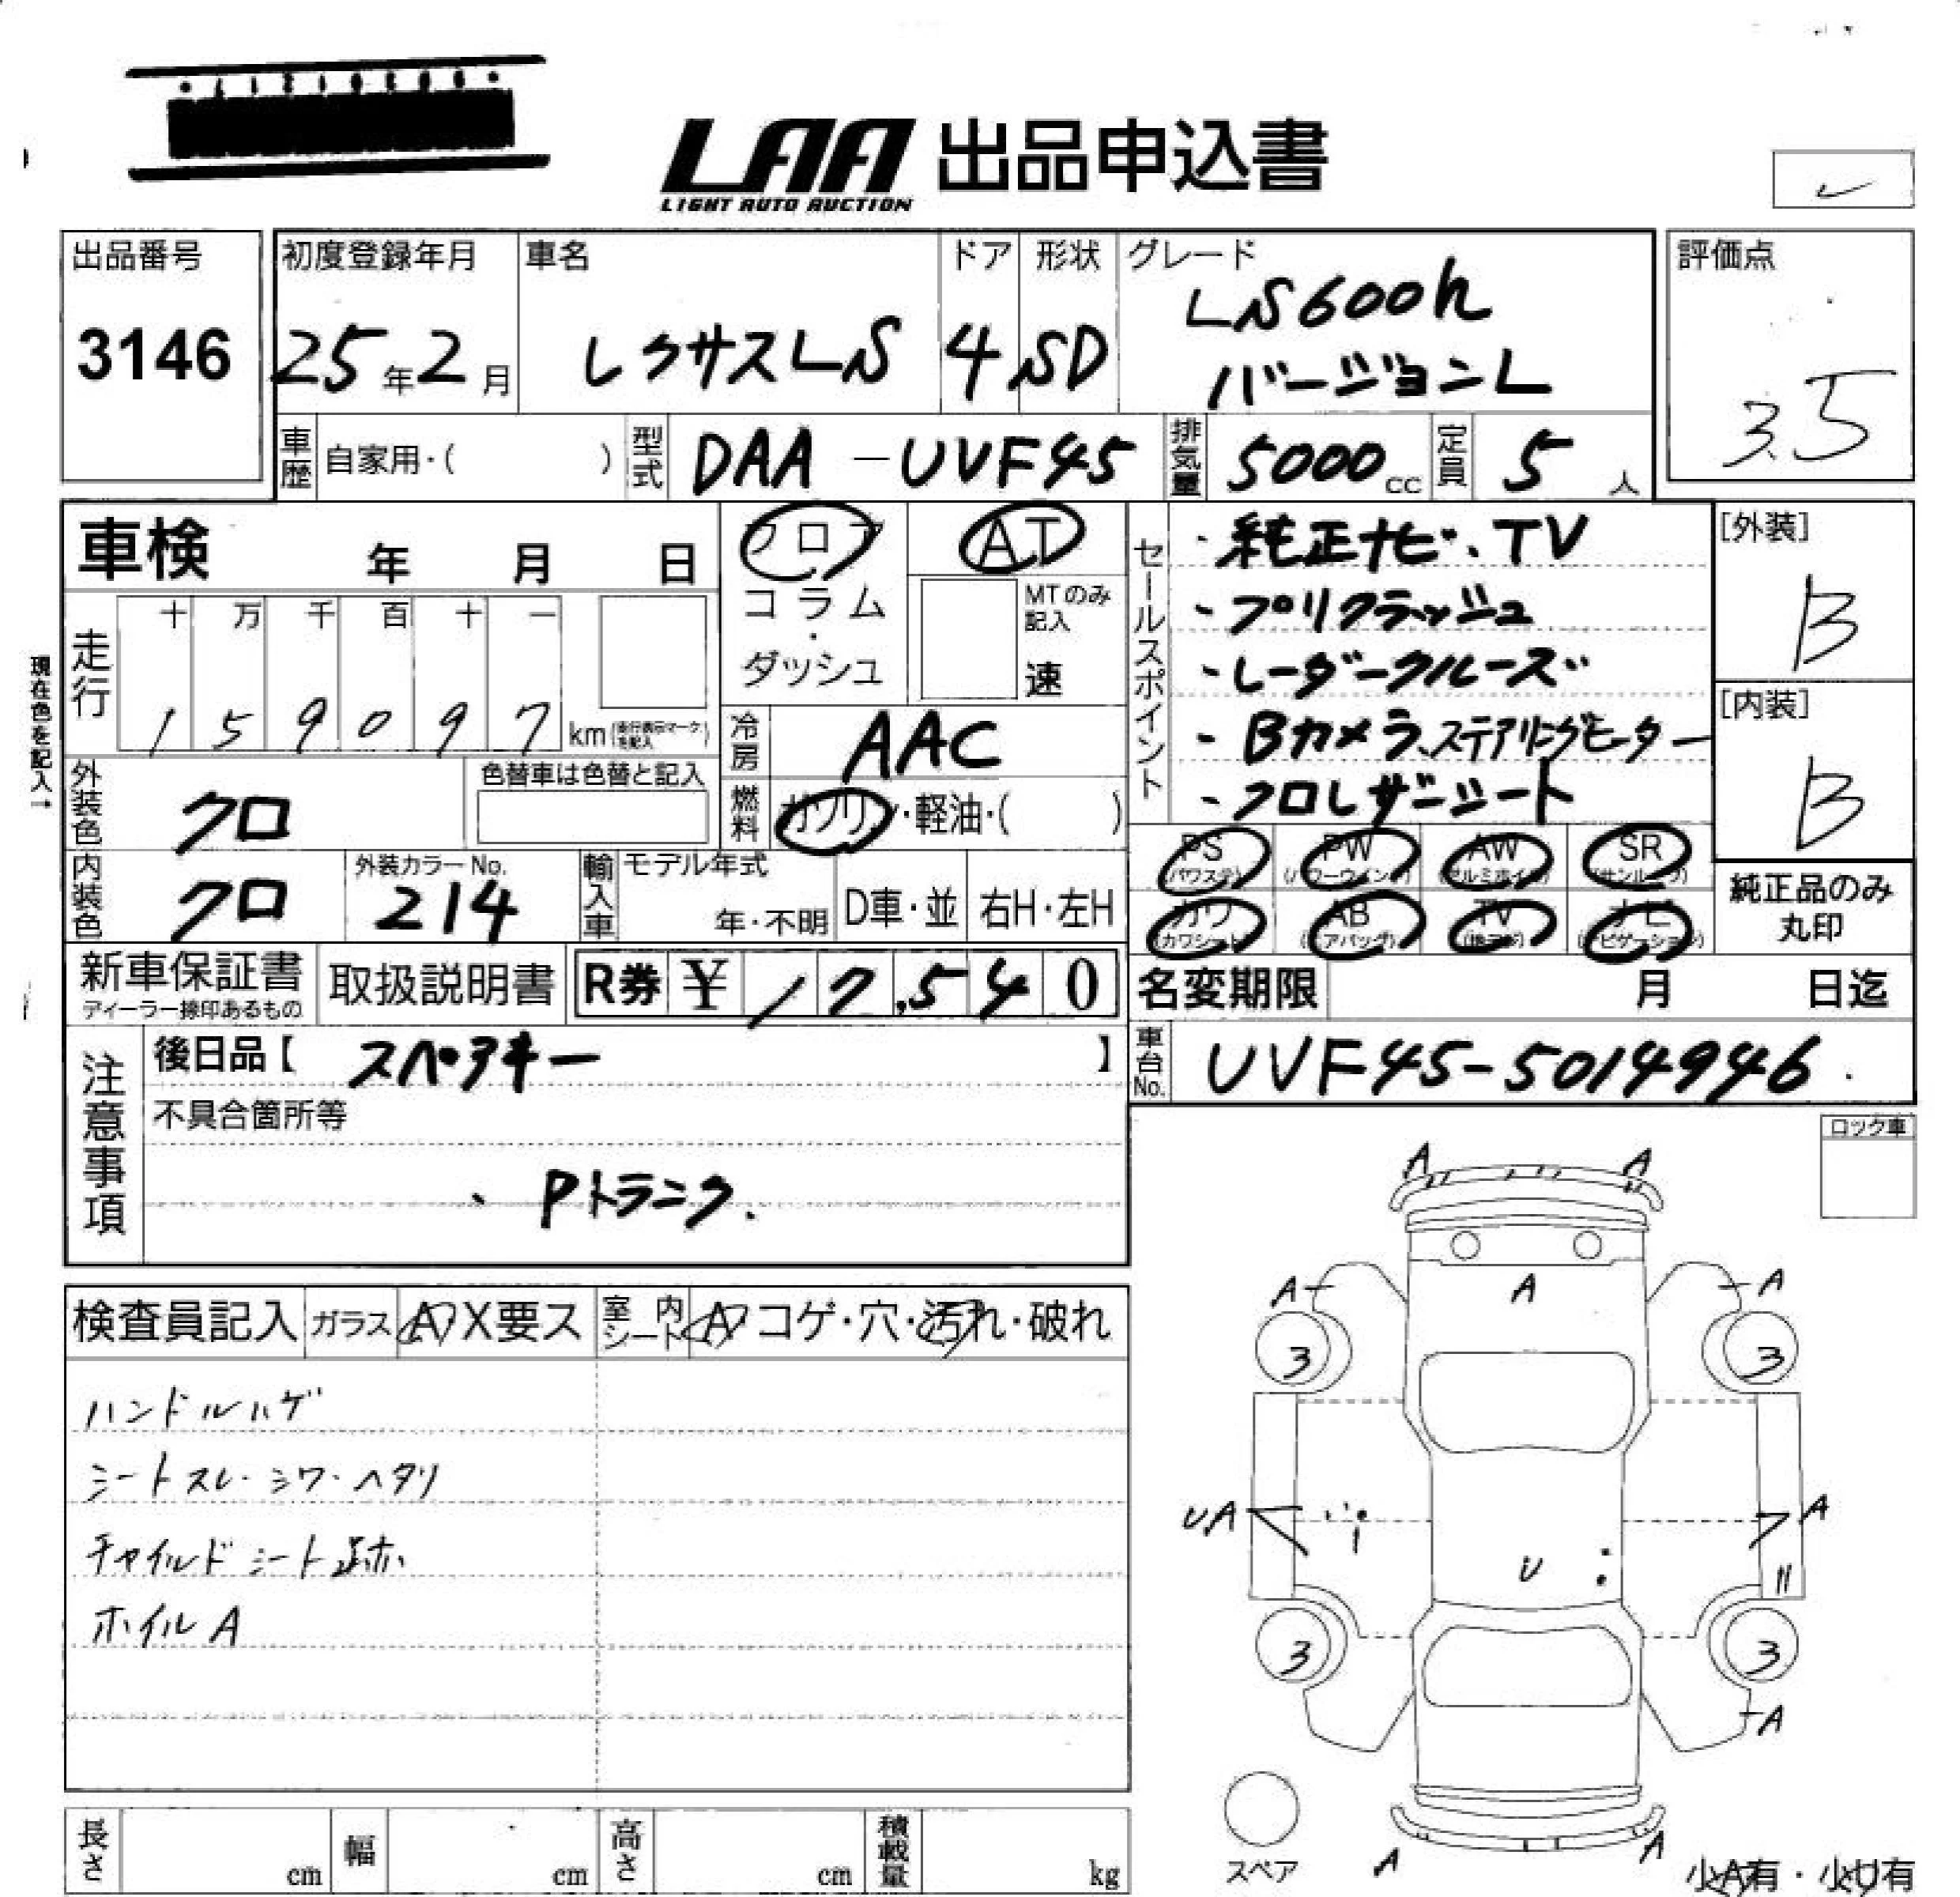 LAA 出品申込書
LIGHT AUTO AUCTION
出品番号
3146
初度登録年月
25年2月
車名
レクサスLS
ドア
4
形状
SD
グレード
LS600h
バージョンL
評価点
3.5
車歴 自家用・( )
型式 DAA-UVF45
排気量 5000cc
定員 5人
車検 年 月 日
フロア
コラム
・
ダッシュ
AT
MTのみ
記入
速
セールスポイント
・純正ナビ、TV
・プリクラッシュ
・レーダークルーズ
・Bカメラ、ステアリングヒーター
・クロレザーシート
[外装]
B
[内装]
B
現在色を記入→
走行
十 万 千 百 十 一
1 5 9 0 9 7 km(走行表示マークを記入)
冷房 AAC
燃料 ガソリン・軽油・( )
外装色 クロ
色替車は色替と記入
内装色 クロ
外装カラーNo.
214
輸入車
モデル年式
年・不明
D車・並
右H・左H
PS
(パワステ)
PW
(パワーウインド)
AW
(アルミホイル)
SR
(サンルーフ)
カワ
(カワシート)
AB
(エアバッグ)
TV
(地デジ)
ナビ
(ナビゲーション)
純正品のみ
丸印
新車保証書
ディーラー捺印あるもの
取扱説明書
R券 ¥ 17,540
名変期限 月 日迄
車台No. UVF45-5014946
注意事項
後日品【 スペアキー 】
不具合箇所等
、Pトランク.
ロック車
検査員記入
ガラス A X要ス
室内シート A コゲ・穴・汚れ・破れ
ハンドルハゲ
シートスレ・シワ・ヘタリ
チャイルドシート跡
ホイルA
A A
A A A
3 3
UA A
U
3 3
A
A A
スペア
小A有・小U有
長さ cm
幅 cm
高さ cm
積載量 kg